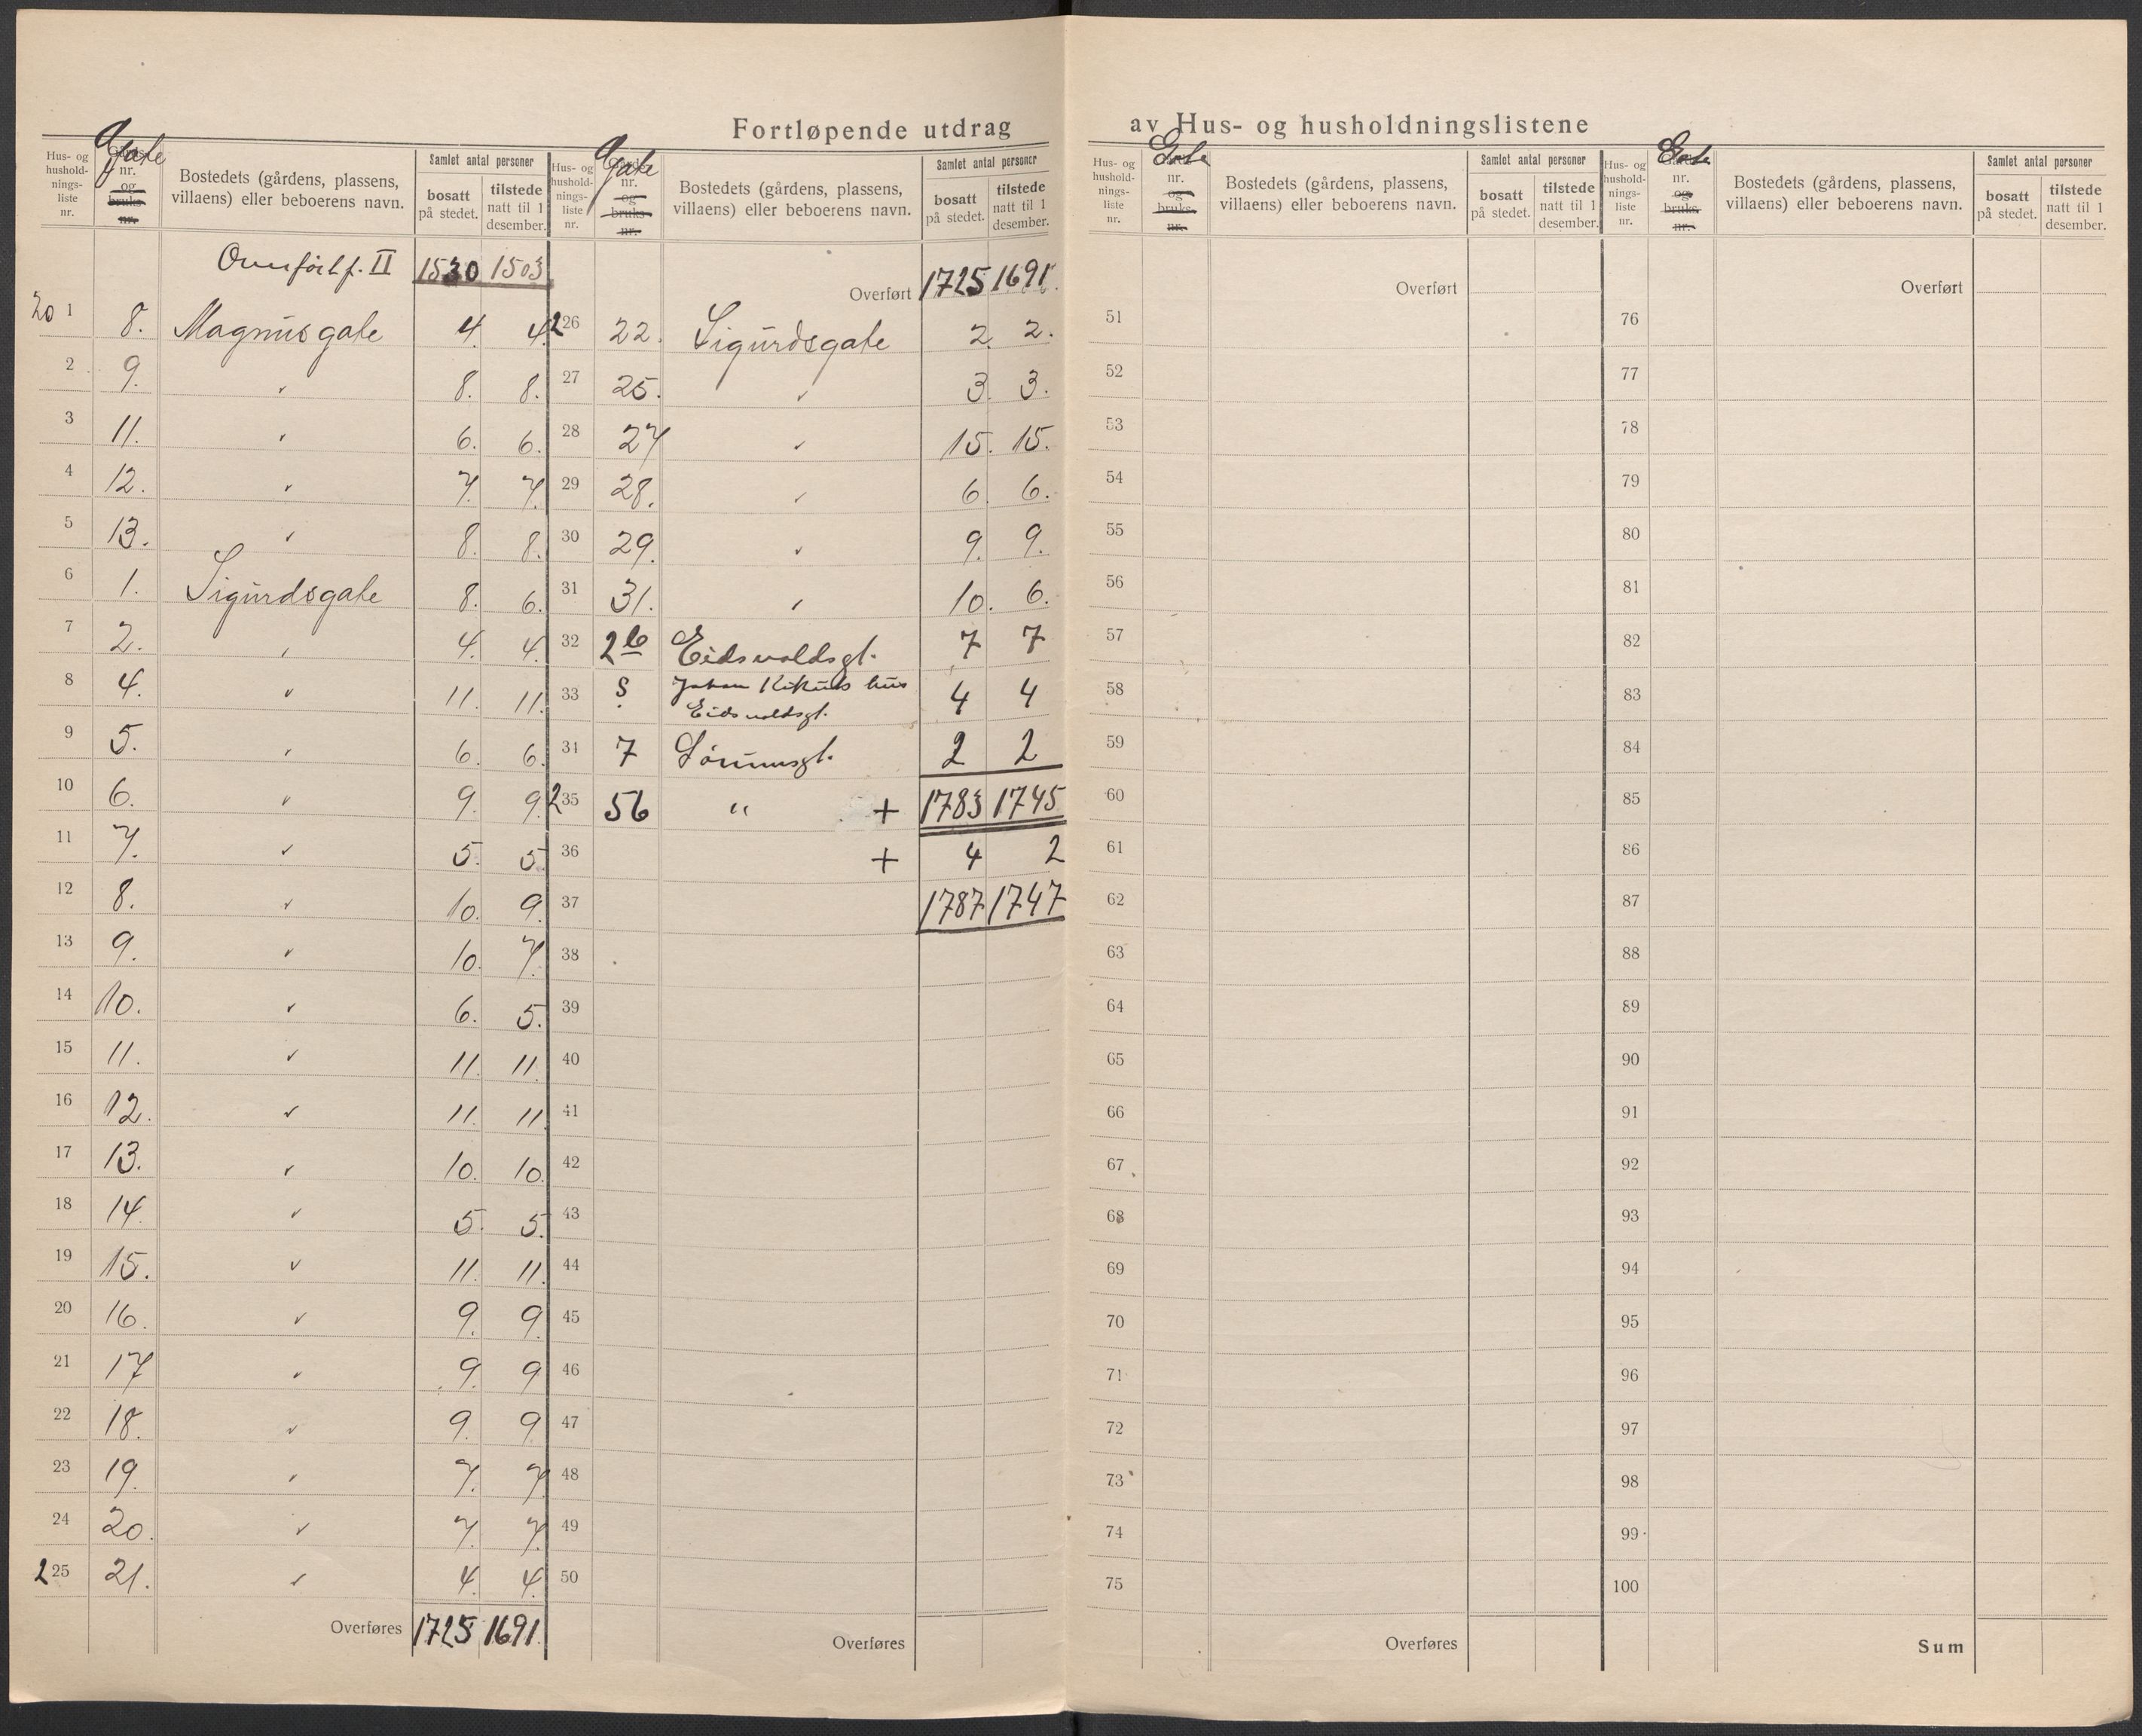 Fortløpende utdrag av Hus- og husholdningslistene
Hus- og hushold- nings- liste nr.
Gate nr. og bruks- nr.
Bostedets (gårdens, plassens, villaens) eller beboerens navn.
Samlet antal personer
bosatt på stedet.
tilstede natt til 1 desember.
Overført f. II 1530 1503
201 8. Magnusgate 4. 4.
2 9. " 8. 8.
3 11. " 6. 6.
4 12. " 7. 7.
5 13. " 8. 8.
6 1. Sigurdsgate 8. 6.
7 2. " 4. 4.
8 4. " 11. 11.
9 5. " 6. 6.
10 6. " 9. 9.
11 7. " 5. 5.
12 8. " 10. 9.
13 9. " 10. 7.
14 10. " 6. 5.
15 11. " 11. 11.
16 12. " 11. 11.
17 13. " 10. 10.
18 14. " 5. 5.
19 15. " 11. 11.
20 16. " 9. 9.
21 17 " 9. 9
22 18. " 9. 9
23 19. " 7. 7
24 20. " 7. 7.
225 21. " 4. 4.
Overføres 1725 1691.
Hus- og hushold- nings- liste nr.
Gate nr. og bruks- nr.
Bostedets (gårdens, plassens, villaens) eller beboerens navn.
Samlet antal personer
bosatt på stedet.
tilstede natt til 1 desember.
Overført 1725 1691.
226 22. Sigurdsgate 2. 2.
27 25. " 3. 3.
28 27 " 15. 15.
29 28. " 6. 6.
30 29. " 9. 9.
31 31. " 10. 6.
32 2b Eidsvoldsgt. 7 7
33 ? Johan hus 4 4
Eidsvoldsgt.
34 7 2 2
235 56 " + 1783 1745
36 + 4 2
37 1787 1747
38
39
40
41
42
43
44
45
46
47
48
49
50
Overføres
Hus- og hushold- nings- liste nr.
Gate nr. og bruks- nr.
Bostedets (gårdens, plassens, villaens) eller beboerens navn.
Samlet antal personer
bosatt på stedet.
tilstede natt til 1 desember.
Overført
51
52
53
54
55
56
57
58
59
60
61
62
63
64
65
66
67
68
69
70
71
72
73
74
75
Overføres
Hus- og hushold- nings- liste nr.
Gate nr. og bruks- nr.
Bostedets (gårdens, plassens, villaens) eller beboerens navn.
Samlet antal personer
bosatt på stedet.
tilstede natt til 1 desember.
Overført
76
77
78
79
80
81
82
83
84
85
86
87
88
89
90
91
92
93
94
95
96
97
98
99
100
Sum